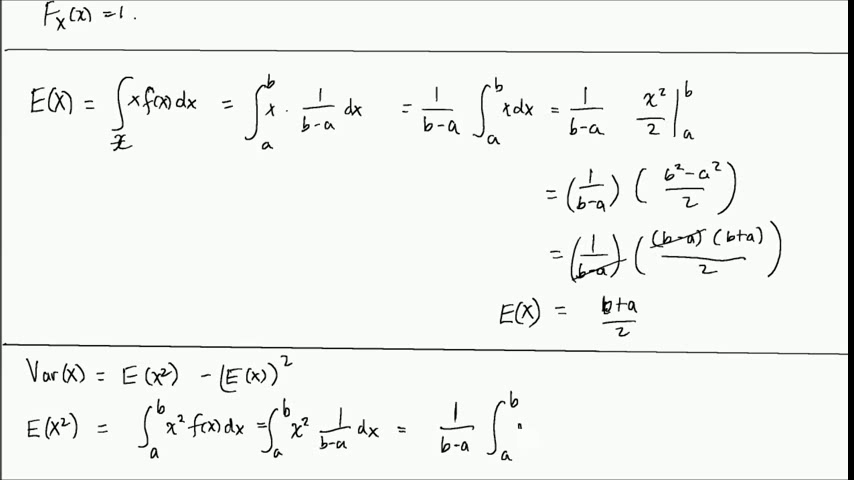 F_X(x) = 1.
E(X) = ∫_𝒳 x f(x) dx = ∫_a^b x · 1/(b-a) dx = 1/(b-a) ∫_a^b x dx = 1/(b-a) x²/2 |_a^b
= (1/(b-a)) ((b²-a²)/2)
= (1/(b-a)) ((b-a)(b+a)/2)
E(X) = (b+a)/2
Var(X) = E(X²) - (E(X))²
E(X²) = ∫_a^b x² f(x) dx = ∫_a^b x² 1/(b-a) dx = 1/(b-a) ∫_a^b